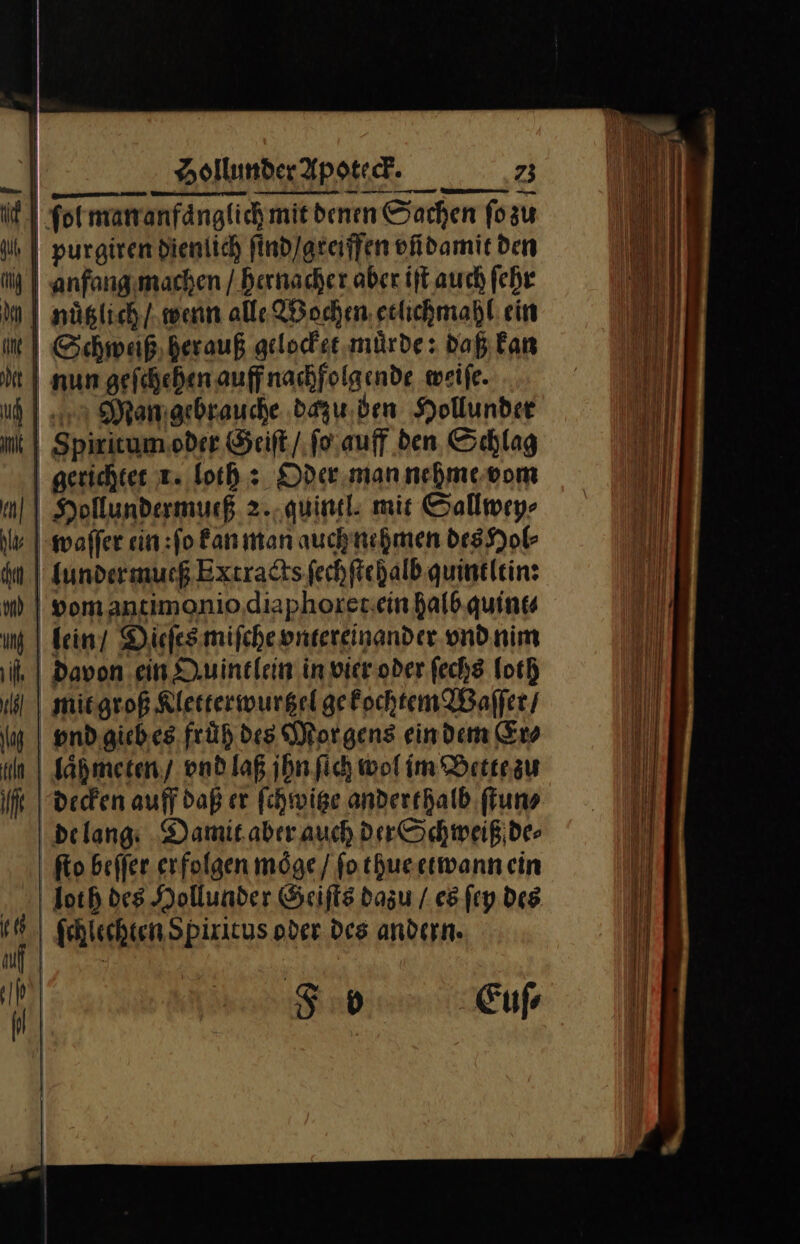 Hollunder Apoteck. 73
ſol man anfånglich mit denen Sachen ſo zu
purgiren dienlich ſind/greiffen vñ damit den
anfang machen / hernacher aber iſt auch ſehr
nůtzlich / wenn alle Wochen etlichmahl ein
Schweiß herauß gelocket můrde: daß kan
nun geſchehen auff nachfolgende weiſe.
Man gebrauche dazu den Hollunder
Spiritum oder Geiſt / ſo auff den Schlag
gerichtet 1. loth: Oder man nehme vom
Hollundermueß 2. quintl. mit Sallwey⸗
waſſer ein: ſo kan man auch nehmen des Hol⸗
lundermueß Extracts ſechſtehalb quintlein:
vom antimonio diaphoret. ein halb quint⸗
lein / Dieſes miſche vntereinander vnd nim
davon ein Quintlein in vier oder ſechs loth
mit groß Kletterwurtzel gekochtem Waſſer /
vnd gieb es frůh des Morgens ein dem Er⸗
låhmeten / vnd laß jhn ſich wol im Bette zu
decken auff daß er ſchwitze anderthalb ſtun⸗
de lang. Damit aber auch der Schweiß de⸗
ſto beſſer erfolgen mőge / ſo thue etwann ein
loth des Hollunder Geiſts dazu / es ſey des
ſchlechten Spiritus oder des andern.
F v Euſ⸗